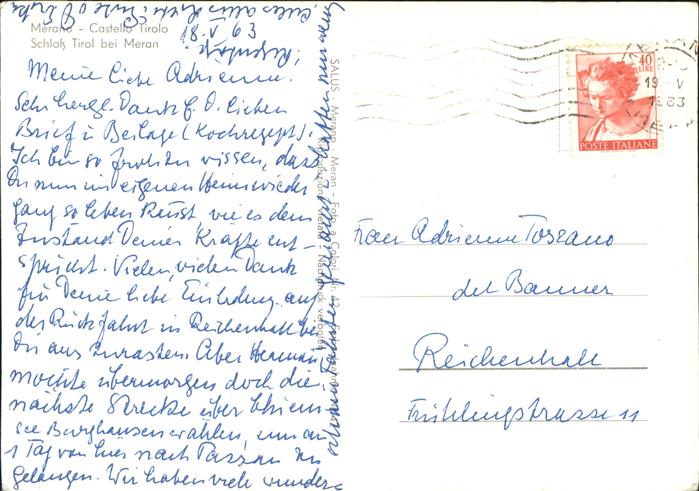 Merano - Castello Tirolo
Schloß Tirol bei Meran
18. V 63
Meine liebe Adrienne.
Sehr herzl. Dank f. D. lieben
Brief u Beilage (Kochrezept).
Ich bin so froh zu wissen, dass
Du nun im eigenen Heim wieder
ganz so leben kannst, wie es dem
Zustand Deiner Kräfte ent-
spricht. Vielen, vielen Dank
für Deine liebe Einladung auf
der Rückfahrt in Reichenhall bei
Dir auszurasten. Aber Hermann
möchte übermorgen doch die
nächste Strecke über Chiem-
see Burghausen wählen, um an
1 Tag von hier nach Passau zu
gelangen. Wir haben viele wunder-
schöne Fahrten gemacht u hatten
SALUS - Merano - Meran - Foto a Colori
40
LIRE
POSTE ITALIANE
19 V
1963
Frau Adrienne Toscano
del Banner
Reichenhall
Frühlingstrasse 11